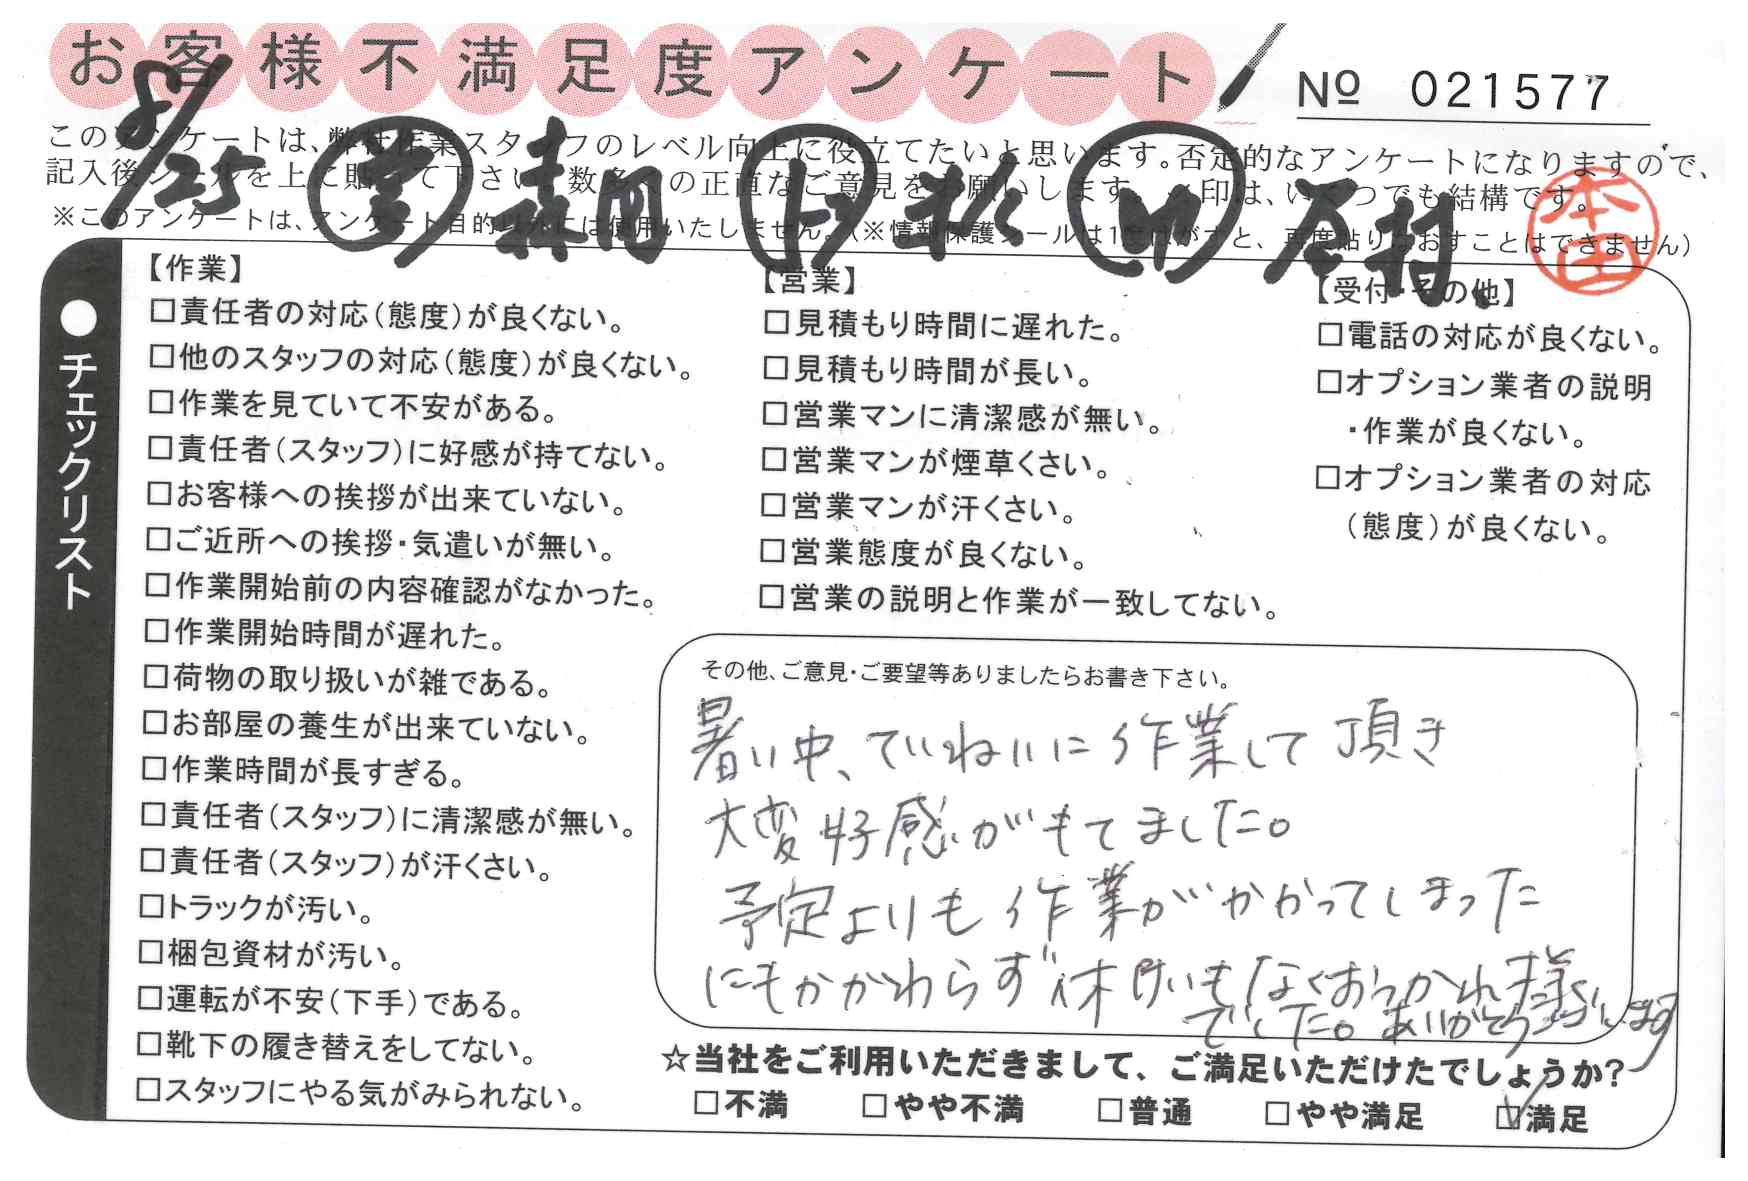 お客様不満足度アンケート
№ 021577
このアンケートは、弊社作業スタッフのレベル向上に役立てたいと思います。否定的なアンケートになりますので、
記入後シールを上に貼って下さい。数多くの正直なご意見をお願いします。✓印は、いくつでも結構です。
※このアンケートは、アンケート目的以外には使用いたしません。(※情報保護シールは1度はがすと、再度貼りなおすことはできません)
8/25 営 森岡 ト 谷村
本田
●チェックリスト
【作業】
□責任者の対応(態度)が良くない。
□他のスタッフの対応(態度)が良くない。
□作業を見ていて不安がある。
□責任者(スタッフ)に好感が持てない。
□お客様への挨拶が出来ていない。
□ご近所への挨拶・気遣いが無い。
□作業開始前の内容確認がなかった。
□作業開始時間が遅れた。
□荷物の取り扱いが雑である。
□お部屋の養生が出来ていない。
□作業時間が長すぎる。
□責任者(スタッフ)に清潔感が無い。
□責任者(スタッフ)が汗くさい。
□トラックが汚い。
□梱包資材が汚い。
□運転が不安(下手)である。
□靴下の履き替えをしてない。
□スタッフにやる気がみられない。
【営業】
□見積もり時間に遅れた。
□見積もり時間が長い。
□営業マンに清潔感が無い。
□営業マンが煙草くさい。
□営業マンが汗くさい。
□営業態度が良くない。
□営業の説明と作業が一致してない。
【受付・その他】
□電話の対応が良くない。
□オプション業者の説明
・作業が良くない。
□オプション業者の対応
(態度)が良くない。
その他、ご意見・ご要望等ありましたらお書き下さい。
暑い中、ていねいに作業して頂き
大変好感がもてました。
予定よりも作業がかかってしまった
にもかかわらず休けいもなくおつかれ様
でした。ありがとうございます
☆当社をご利用いただきまして、ご満足いただけたでしょうか?
□不満 □やや不満 □普通 □やや満足 ☑満足